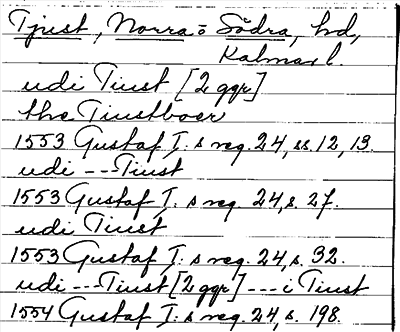 Tjust, Norra o Södra, hd,
Kalmar l.
udi Tiust [2 ggr]
the Tiustboer
1553 Gustaf I:s reg. 24, ss. 12, 13.
udi --- Tiust
1553 Gustaf I:s reg. 24, s. 27.
udi Tiust
1553 Gustaf I:s reg. 24, s. 32.
udi --- Tiust [2 ggr] --- i Tiust
1554 Gustaf I:s reg. 24, s. 198.